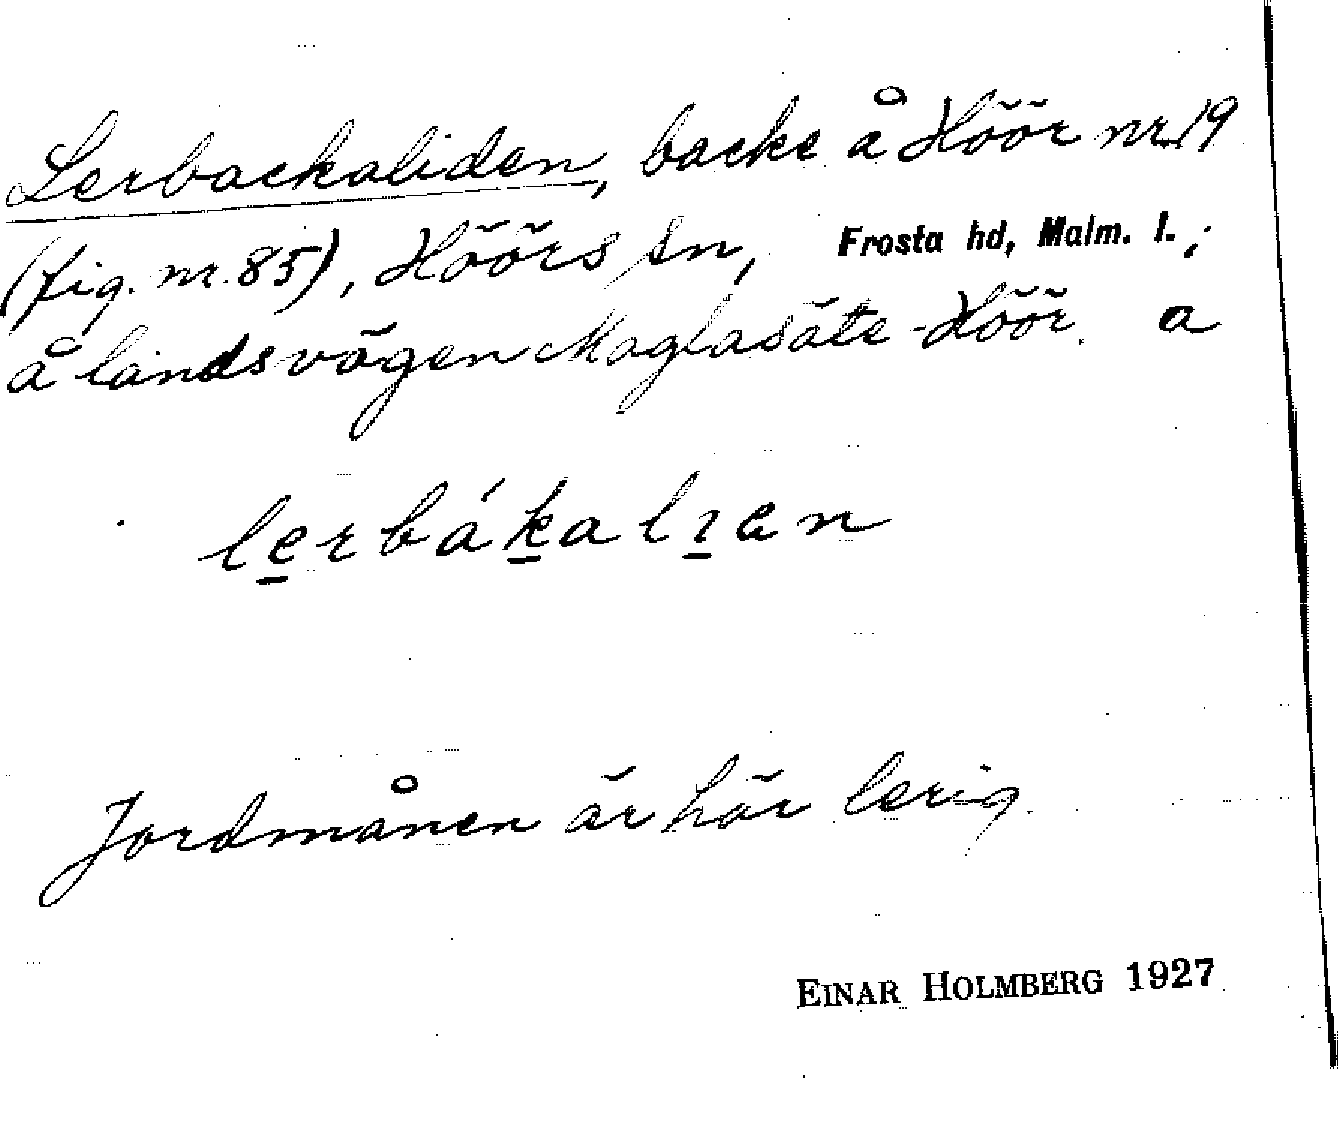 Lerbackaliden, backe å Höör nr 19
(fig. nr. 85), Höörs sn, Frosta hd, Malm. l.;
å landsvägen Maglasäte-Höör. a
lerbákalıen
Jordmånen är här lerig.
EINAR HOLMBERG 1927